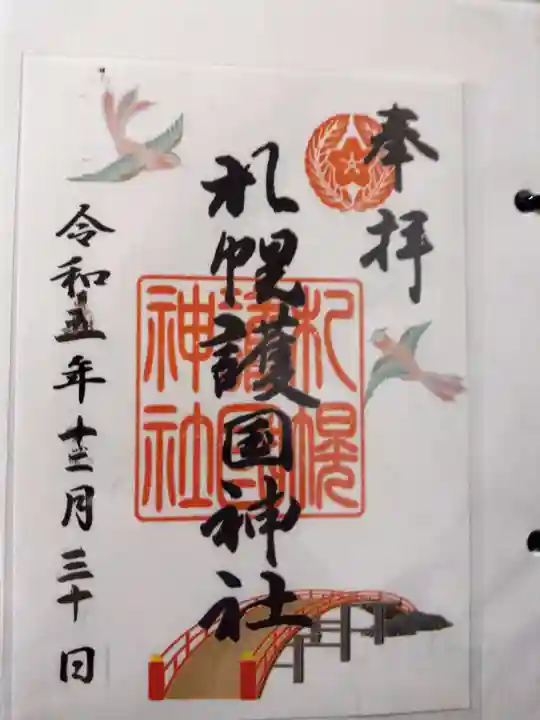 奉拝
札幌護国神社
札幌
護国
神社
令和五年十二月三十日